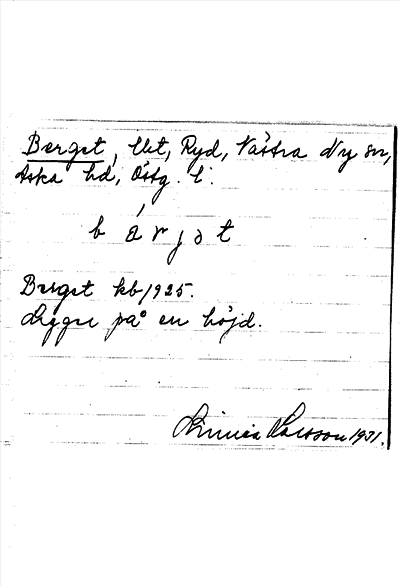 Berget, lht, Ryd, Västra Ny sn,
Aska hd, Östg. l.
b á r j ə t
Berget kb 1925.
Ligger på en höjd.
Linnéa Larsson 1931.